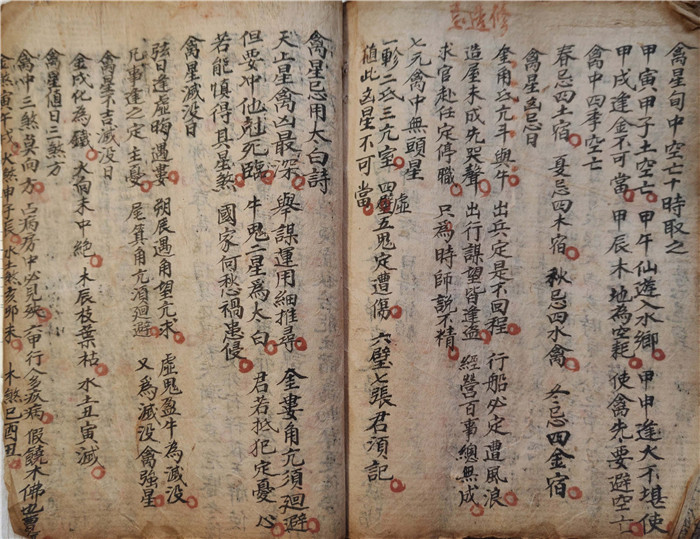 禽星旬中空亡十時取之
甲寅甲子土空亡 甲午仙遊入水鄉 甲申逢火不堪使
甲戌逢金不可當 甲辰木地為空耗 使禽先要避空亡
禽中四季空亡
春忌四土宿 夏忌四木宿 秋忌四水禽 冬忌四金宿
禽星凶忌日
奎角亢與牛 出兵定是不回程 行船必定遭風浪
造屋未成先哭聲 出行謀望皆逢盜 經營百事總無成
求官赴任定停職 只為時師說不精
七元禽中無頭星
一軫二三元室 四虛五鬼定遭傷 六壁七張君須記
值此凶星不可當
禽星忌用太白詩
天上星禽凶最深 舉謀運用細推尋 奎婁角亢須廻避
但要冲他尅死臨 牛鬼二星為太白 君若抵犯定憂心
若能慎得其星煞 國家何愁禍患侵
禽星滅沒日
弦日逢虛晦遇婁 朔辰遇角望亢求 虛鬼盈牛為滅沒
凡事逢之定主憂 屋箕角亢須廻避 又為滅沒禽強星
禽星不吉滅沒日
金戌化為鐵 火酉未中絕 木辰枝葉枯 水土丑寅滅
禽星值日三煞方
禽中三煞莫向方 占病方中必見殃 六甲行人多疾病 假饒木佛也
金煞寅午戌 火煞申子辰 水土煞亥卯未 木煞巳酉丑